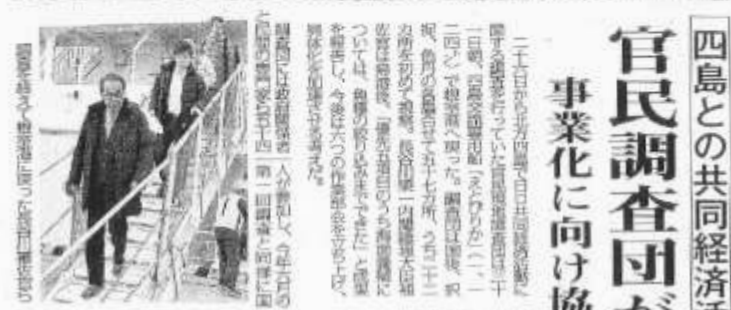 四島との共同経済活
官民調査団が
事業化に向け協
二十六日から北方四島で日ロ共同経済活動に
関する調査を行っていた官民現地調査団は三十
一日朝、四島交流専用船「えとぴりか」(一、一
二四㌧)で根室港へ戻った。調査団は国後、択
捉、色丹の各島合せて五十七カ所、うち二十二
カ所を初めて視察。長谷川榮一内閣総理大臣補
佐官は帰港後、「優先五項目のうち海面養殖に
ついては、魚種の絞り込みまでできた」と成果
を報告し、今後は六つの作業部会を立ち上げ、
具体化を加速させる考えだ。
調査団には政府関係者
と民間の専門家ら五十四
人が参加し、今年六月の
第一回調査と同様に国
調査を終えて根室港に戻った長谷川補佐官ら